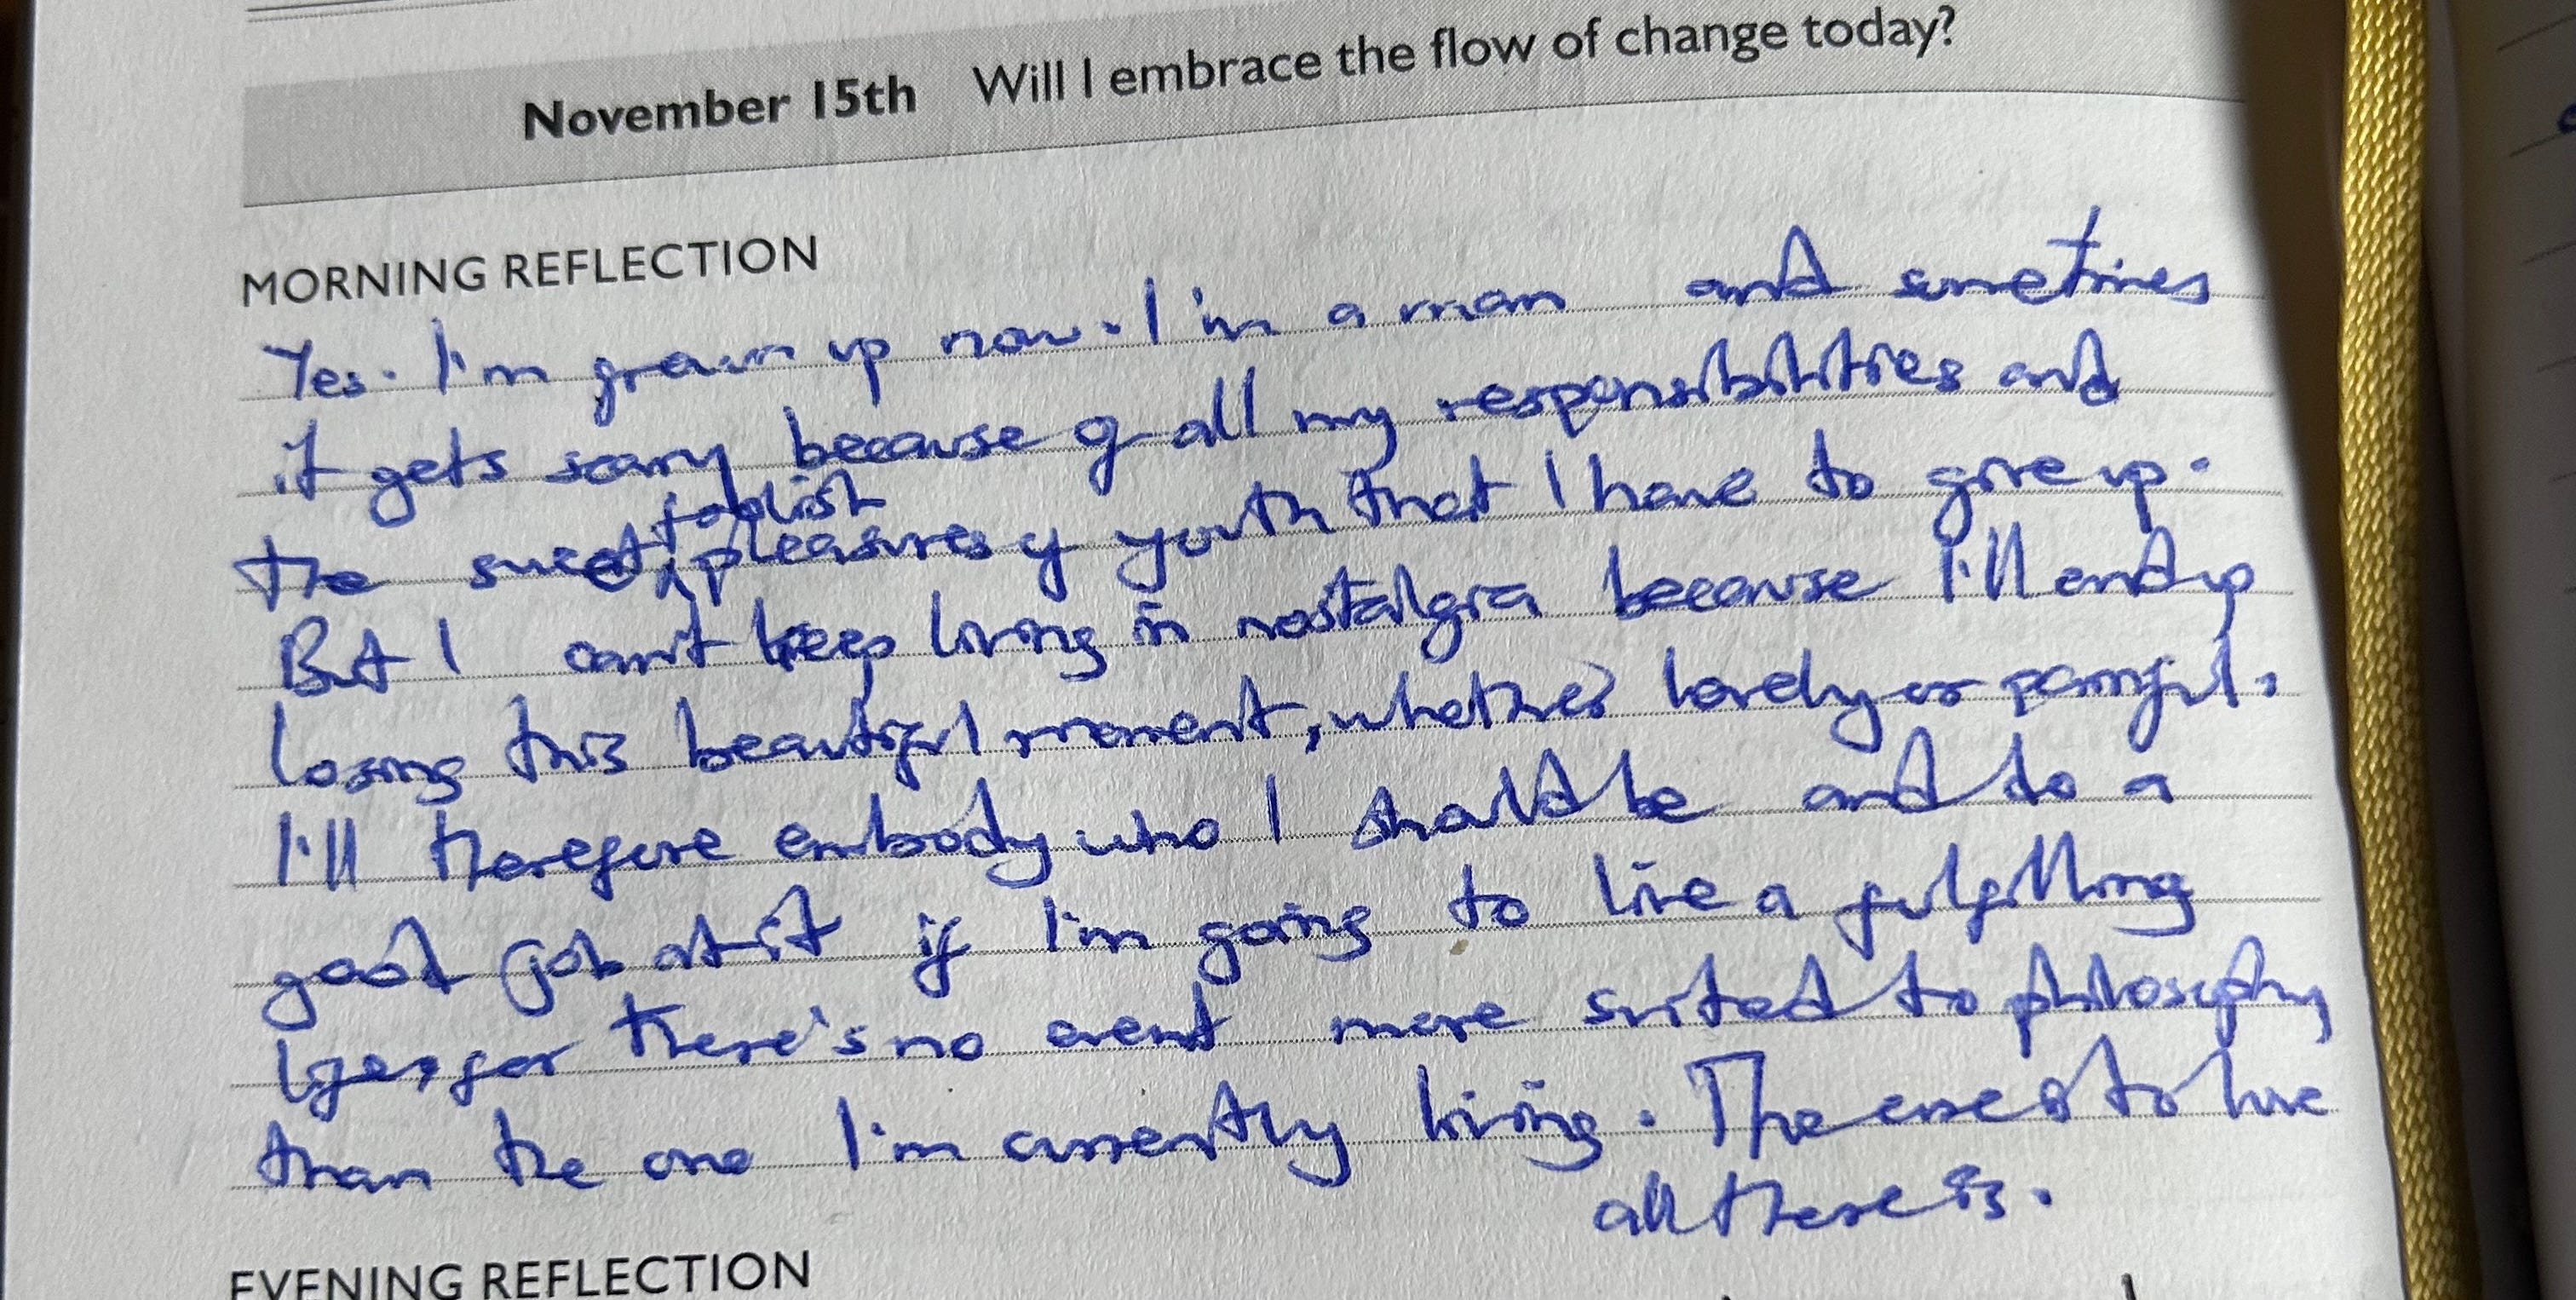 November 15th Will I embrace the flow of change today?
MORNING REFLECTION
Yes. I'm grown up now. I'm a man and sometimes
it gets scary because of all my responsibilities and
the sweet foolish pleasures of youth that I have to give up.
But I can't keep living in nostalgia because I'll end up
losing this beautiful moment, whether lovely or painful.
I'll therefore embody who I should be and do a
good job at it if I'm going to live a fulfilling
life, for there's no event more suited to philosophy
than the one I'm currently living. The is to
all there is.
EVENING REFLECTION